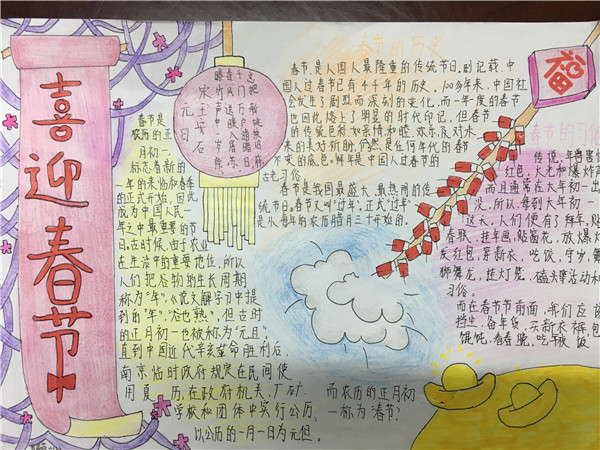 喜迎春节
春节的历史
春节是
农历的正
月初一,
标志着新的
一年的来临和春年
的正式开始,因此
成为中国人民一
年之中最重要的节
日。古时候,由于农业
在生活中的重要地位,所以
人们把谷物的生长周期
称为"年",《说文解字》中提
到的"年","谷也熟",但古时
的正月初一也被称为"元旦",
直到中国近代辛亥革命胜利后,
南京临时政府规定在民间使
用夏历,在政府机关、厂矿、
学校和团体中实行公历,
以公历的一月一日为元但。
而农历的正月初
一称为"春节"。
元日
宋 王安石
爆竹声中一岁除
春风送暖入屠苏
千门万户曈曈日
总把新桃换旧符
春节,是人国人最隆重的传统节日。剧记载,中
国人过春节已有4千年的历史。100多年来,中国社
会发生了剧烈而深刻的变化,而一年一度的春节
也因此烙上了明显的时代印记,但春节一
的传统色彩,如亲情和睦、欢乐、及对未
来的美好祈盼,仍然是任何年代的春节
不变的底色。拜年是中国人过春节的
古老习俗。
春节是我国最盛大、最热闹的传
统节日。春节又叫"过年",正大"过年"
是从每年的农历腊月三十开始的。
福
春节的习
传说,年兽害怕
红色、火光和爆炸声
而且通常在大年初一出
没,所以,每到大年初一
这天,人们便有了拜年、贴
春联、挂年画、贴窗花、放爆炸
发红包、穿新衣、吃饺、守岁、舞
狮舞龙、挂灯笼、磕头等活动和
习俗。
而在春节节前面,我们应该
挡尘、备年货、买新衣裤、包
馄饨、看春晚、吃年夜饭